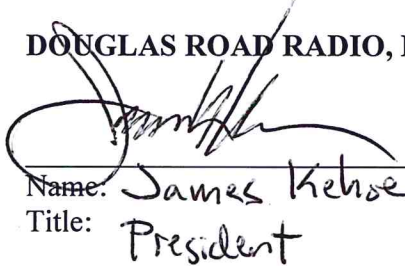 DOUGLAS ROAD RADIO,
Name: James Kehoe
Title: President